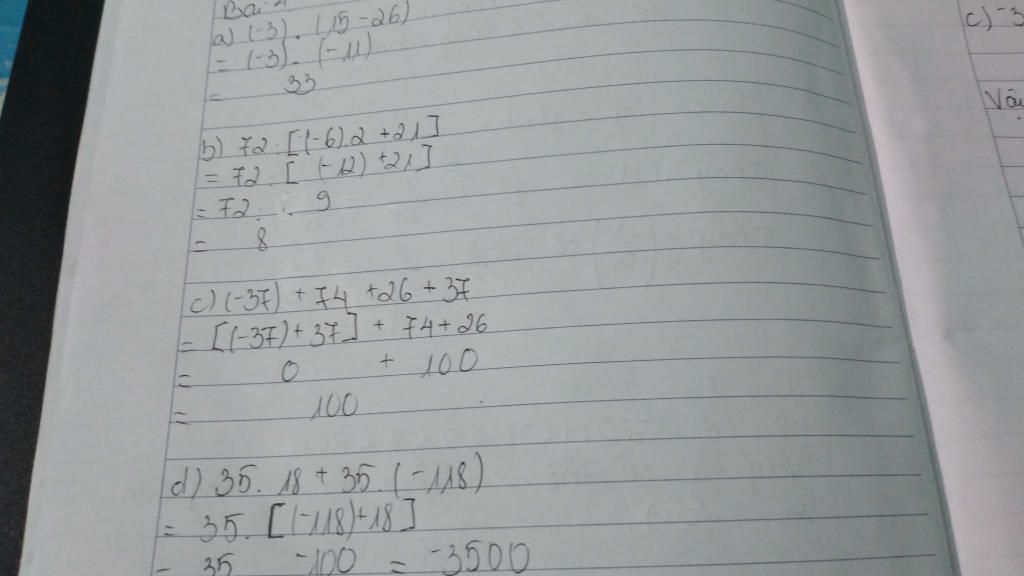 Bài
a) (-3) . (15 - 26)
= (-3) . (-11)
= 33
b) 72 : [(-6).2 + 21]
= 72 : [ (-12) + 21]
= 72 : 9
= 8
c) (-37) + 74 + 26 + 37
= [(-37) + 37] + 74 + 26
= 0 + 100
= 100
d) 35. 18 + 35. (-118)
= 35. [(-118) + 18]
= 35 -100 = -3500
c) -3